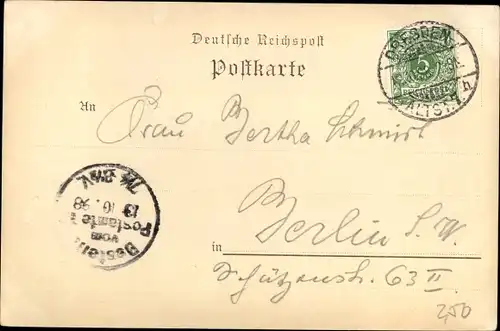 Deutsche Reichspost
Postkarte
DRESDEN
ALTST.
5
An
Frau Bertha Schmidt
Bestellt
vom
Postamte
13 10. 98
Berlin S. W.
in
Schützenstr. 63 II
2,50